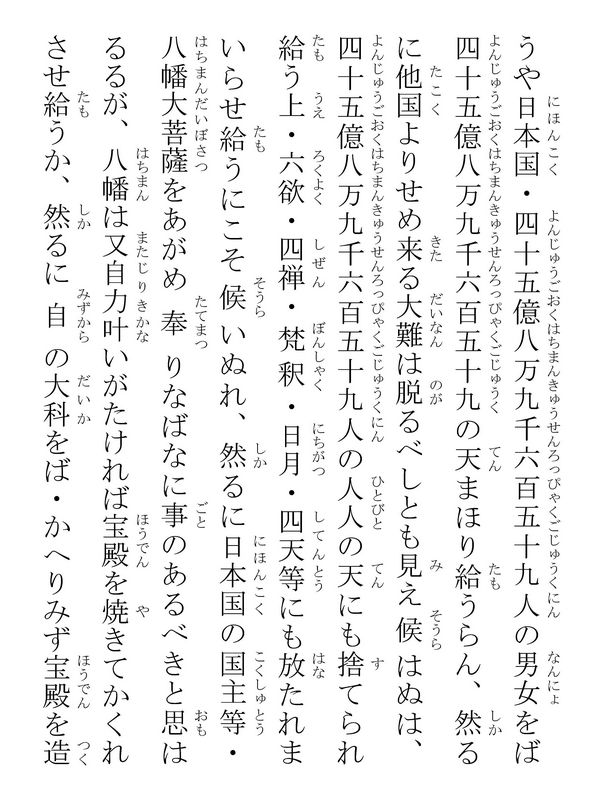 うや日本国・四十五億八万九千六百五十九人の男女をば
四十五億八万九千六百五十九の天まほり給うらん、然る
に他国よりせめ来る大難は脱るべしとも見え候はぬは、
四十五億八万九千六百五十九人の人人の天にも捨てられ
給う上・六欲・四禅・梵釈・日月・四天等にも放たれま
いらせ給うにこそ候いぬれ、然るに日本国の国主等・
八幡大菩薩をあがめ奉りなばなに事のあるべきと思は
るるが、八幡は又自力叶いがたければ宝殿を焼きてかくれ
させ給うか、然るに自の大科をば・かへりみず宝殿を造